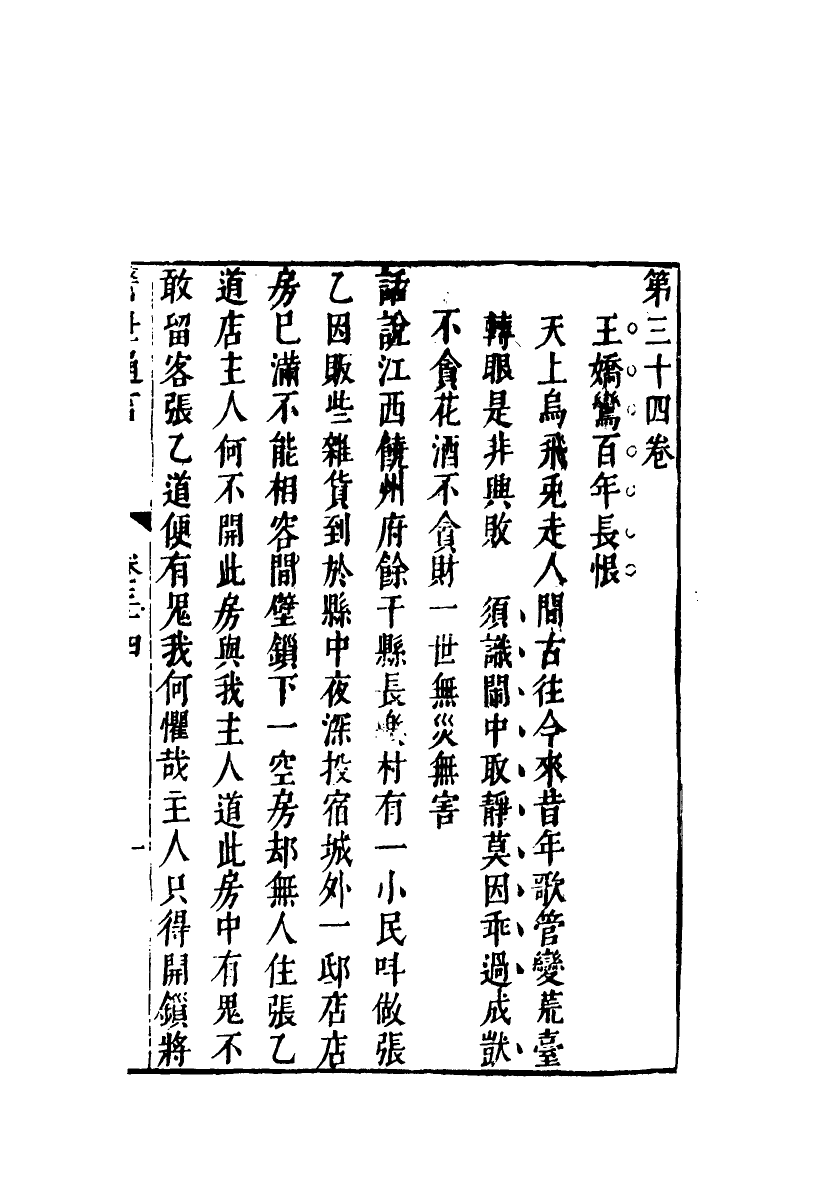 第三十四卷
王嬌鸞百年長恨
天上烏飛兎走人間古徃今來昔年歌管變荒臺
轉眼是非興敗　須識鬧中取靜莫因乖過成獃
不貪花酒不貪財一世無災無害
話說江西饒州府餘干縣長樂村有一小民呌做張
乙因販些雜貨到於縣中夜深投宿城外一邸店店
房已滿不能相容間壁鎖下一空房却無人住張乙
道店主人何不開此房與我主人道此房中有鬼不
敢留客張乙道便有鬼我何懼哉主人只得開鎖將
警世通言　卷三十四　一